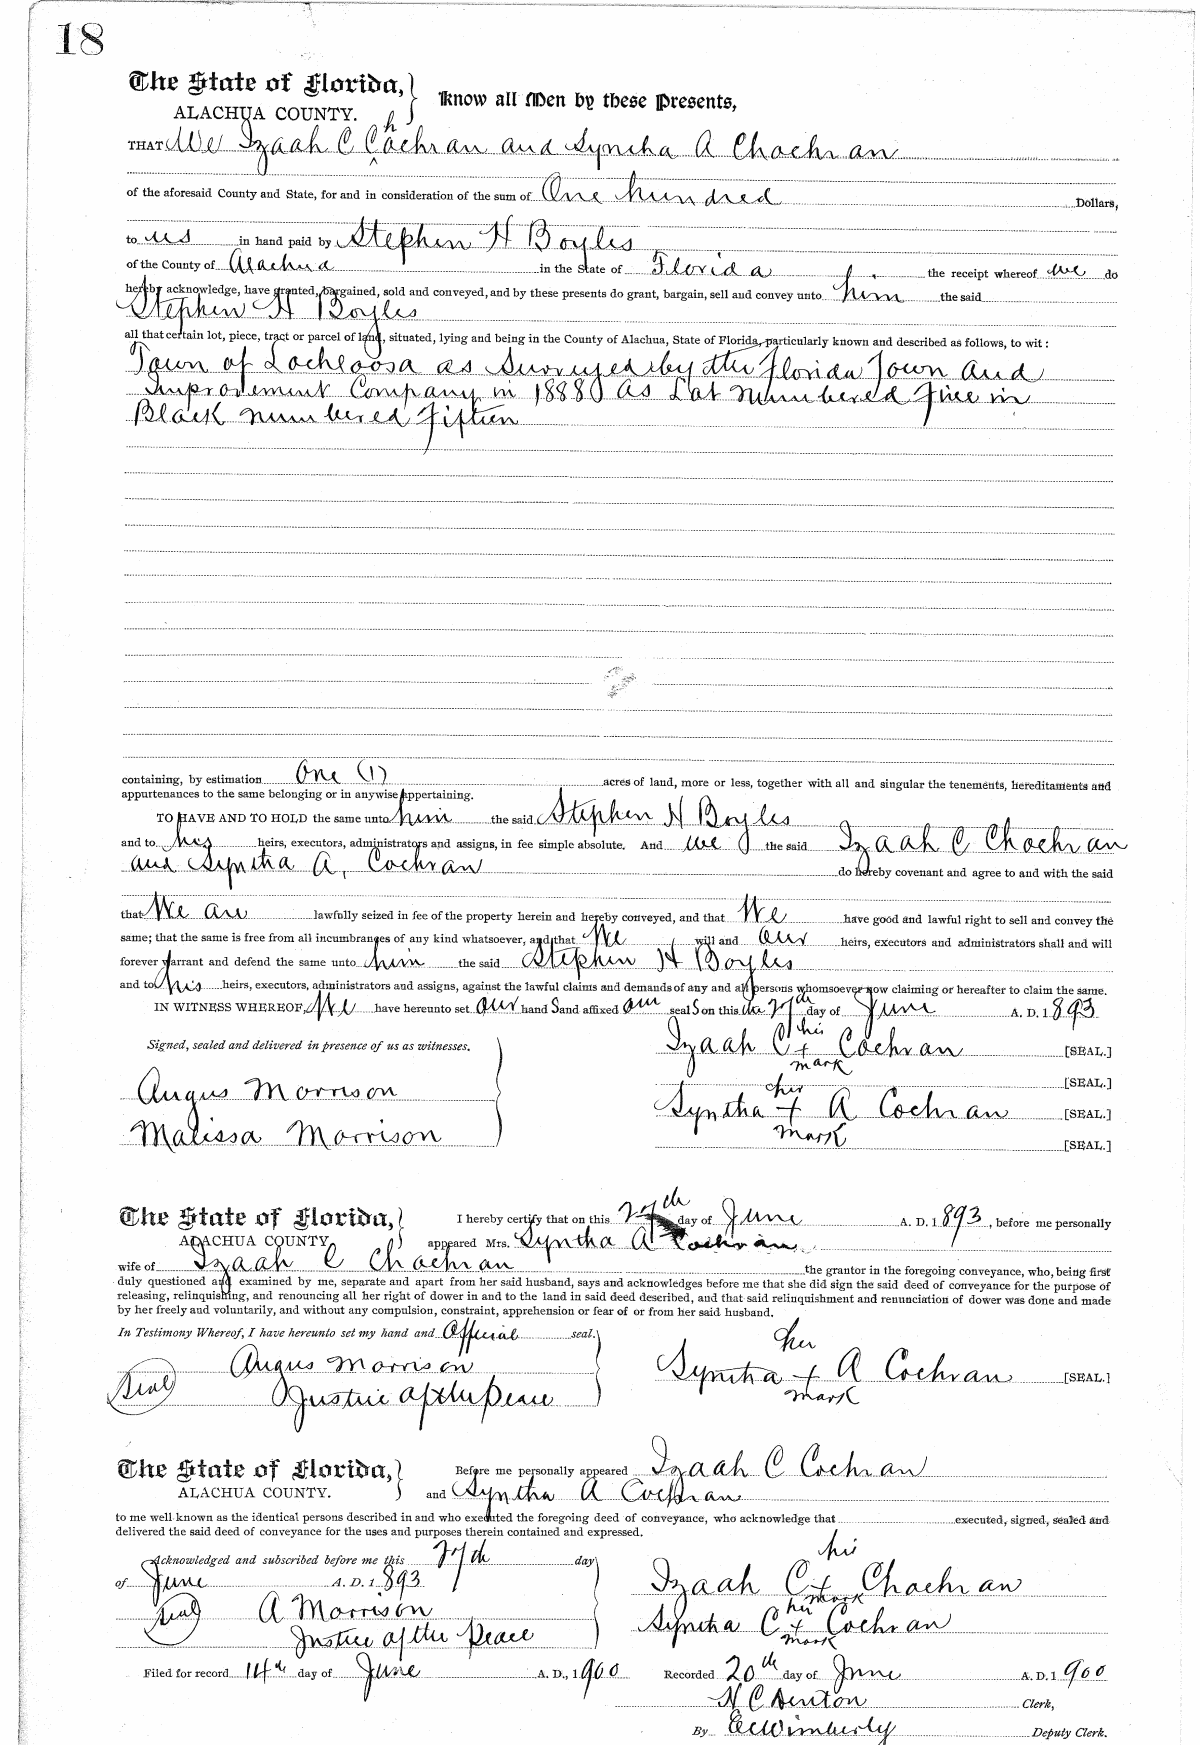 18
The State of Florida,
Know all Men by these Presents,
ALACHUA COUNTY.
THAT We Izaah C Chochran and Syntha A Chochran
of the aforesaid County and State, for and in consideration of the sum of One hundred Dollars,
to us in hand paid by Stephen H Boyles
of the County of Alachua in the State of Florida, the receipt whereof we do
hereby acknowledge, have granted, bargained, sold and conveyed, and by these presents do grant, bargain, sell and convey unto him the said
Stephen H Boyles
all that certain lot, piece, tract or parcel of land, situated, lying and being in the County of Alachua, State of Florida, particularly known and described as follows, to wit:
Town of Lochloosa as Surveyed by the Florida Town and
Improvement Company in 1888 as Lot numbered Five in
Block numbered Fifteen
containing, by estimation One (1) acres of land, more or less, together with all and singular the tenements, hereditaments and
appurtenances to the same belonging or in anywise appertaining.
TO HAVE AND TO HOLD the same unto him the said Stephen H Boyles
and to his heirs, executors, administrators and assigns, in fee simple absolute. And we the said Izaah C Chochran
and Syntha A, Cochran do hereby covenant and agree to and with the said
that We are lawfully seized in fee of the property herein and hereby conveyed, and that We have good and lawful right to sell and convey the
same; that the same is free from all incumbrances of any kind whatsoever, and that We will and our heirs, executors and administrators shall and will
forever warrant and defend the same unto him the said Stephen H Boyles
and to his heirs, executors, administrators and assigns, against the lawful claims and demands of any and all persons whomsoever now claiming or hereafter to claim the same.
IN WITNESS WHEREOF, We have hereunto set our hand S and affixed our seal S on this the 27th day of June A. D. 1893
Signed, sealed and delivered in presence of us as witnesses.
his
Izaah C + Cochran [SEAL.]
mark
[SEAL.]
Angus Morrison
her
Syntha + A Cochran [SEAL.]
mark
Malissa Morrison
[SEAL.]
The State of Florida,
ALACHUA COUNTY.
I hereby certify that on this 27th day of June A. D. 1893, before me personally
appeared Mrs. Syntha A Cochran
wife of Izaah C Chochran the grantor in the foregoing conveyance, who, being first
duly questioned and examined by me, separate and apart from her said husband, says and acknowledges before me that she did sign the said deed of conveyance for the purpose of
releasing, relinquishing, and renouncing all her right of dower in and to the land in said deed described, and that said relinquishment and renunciation of dower was done and made
by her freely and voluntarily, and without any compulsion, constraint, apprehension or fear of or from her said husband.
In Testimony Whereof, I have hereunto set my hand and Official seal.
Angus Morrison
Seal
Justice of the Peace
her
Syntha + A Cochran [SEAL.]
mark
The State of Florida,
ALACHUA COUNTY.
Before me personally appeared Izaah C Cochran
and Syntha A Cochran
to me well known as the identical persons described in and who executed the foregoing deed of conveyance, who acknowledge that executed, signed, sealed and
delivered the said deed of conveyance for the uses and purposes therein contained and expressed.
Acknowledged and subscribed before me this 27th day
of June A. D. 1893
Seal A Morrison
Justice of the Peace
his
Izaah C + Chochran
mark
her
Syntha C + Cochran
mark
Filed for record 14th day of June A. D., 1900
Recorded 20th day of June A. D. 1900
H C Denton Clerk,
By E C Wimberly Deputy Clerk.